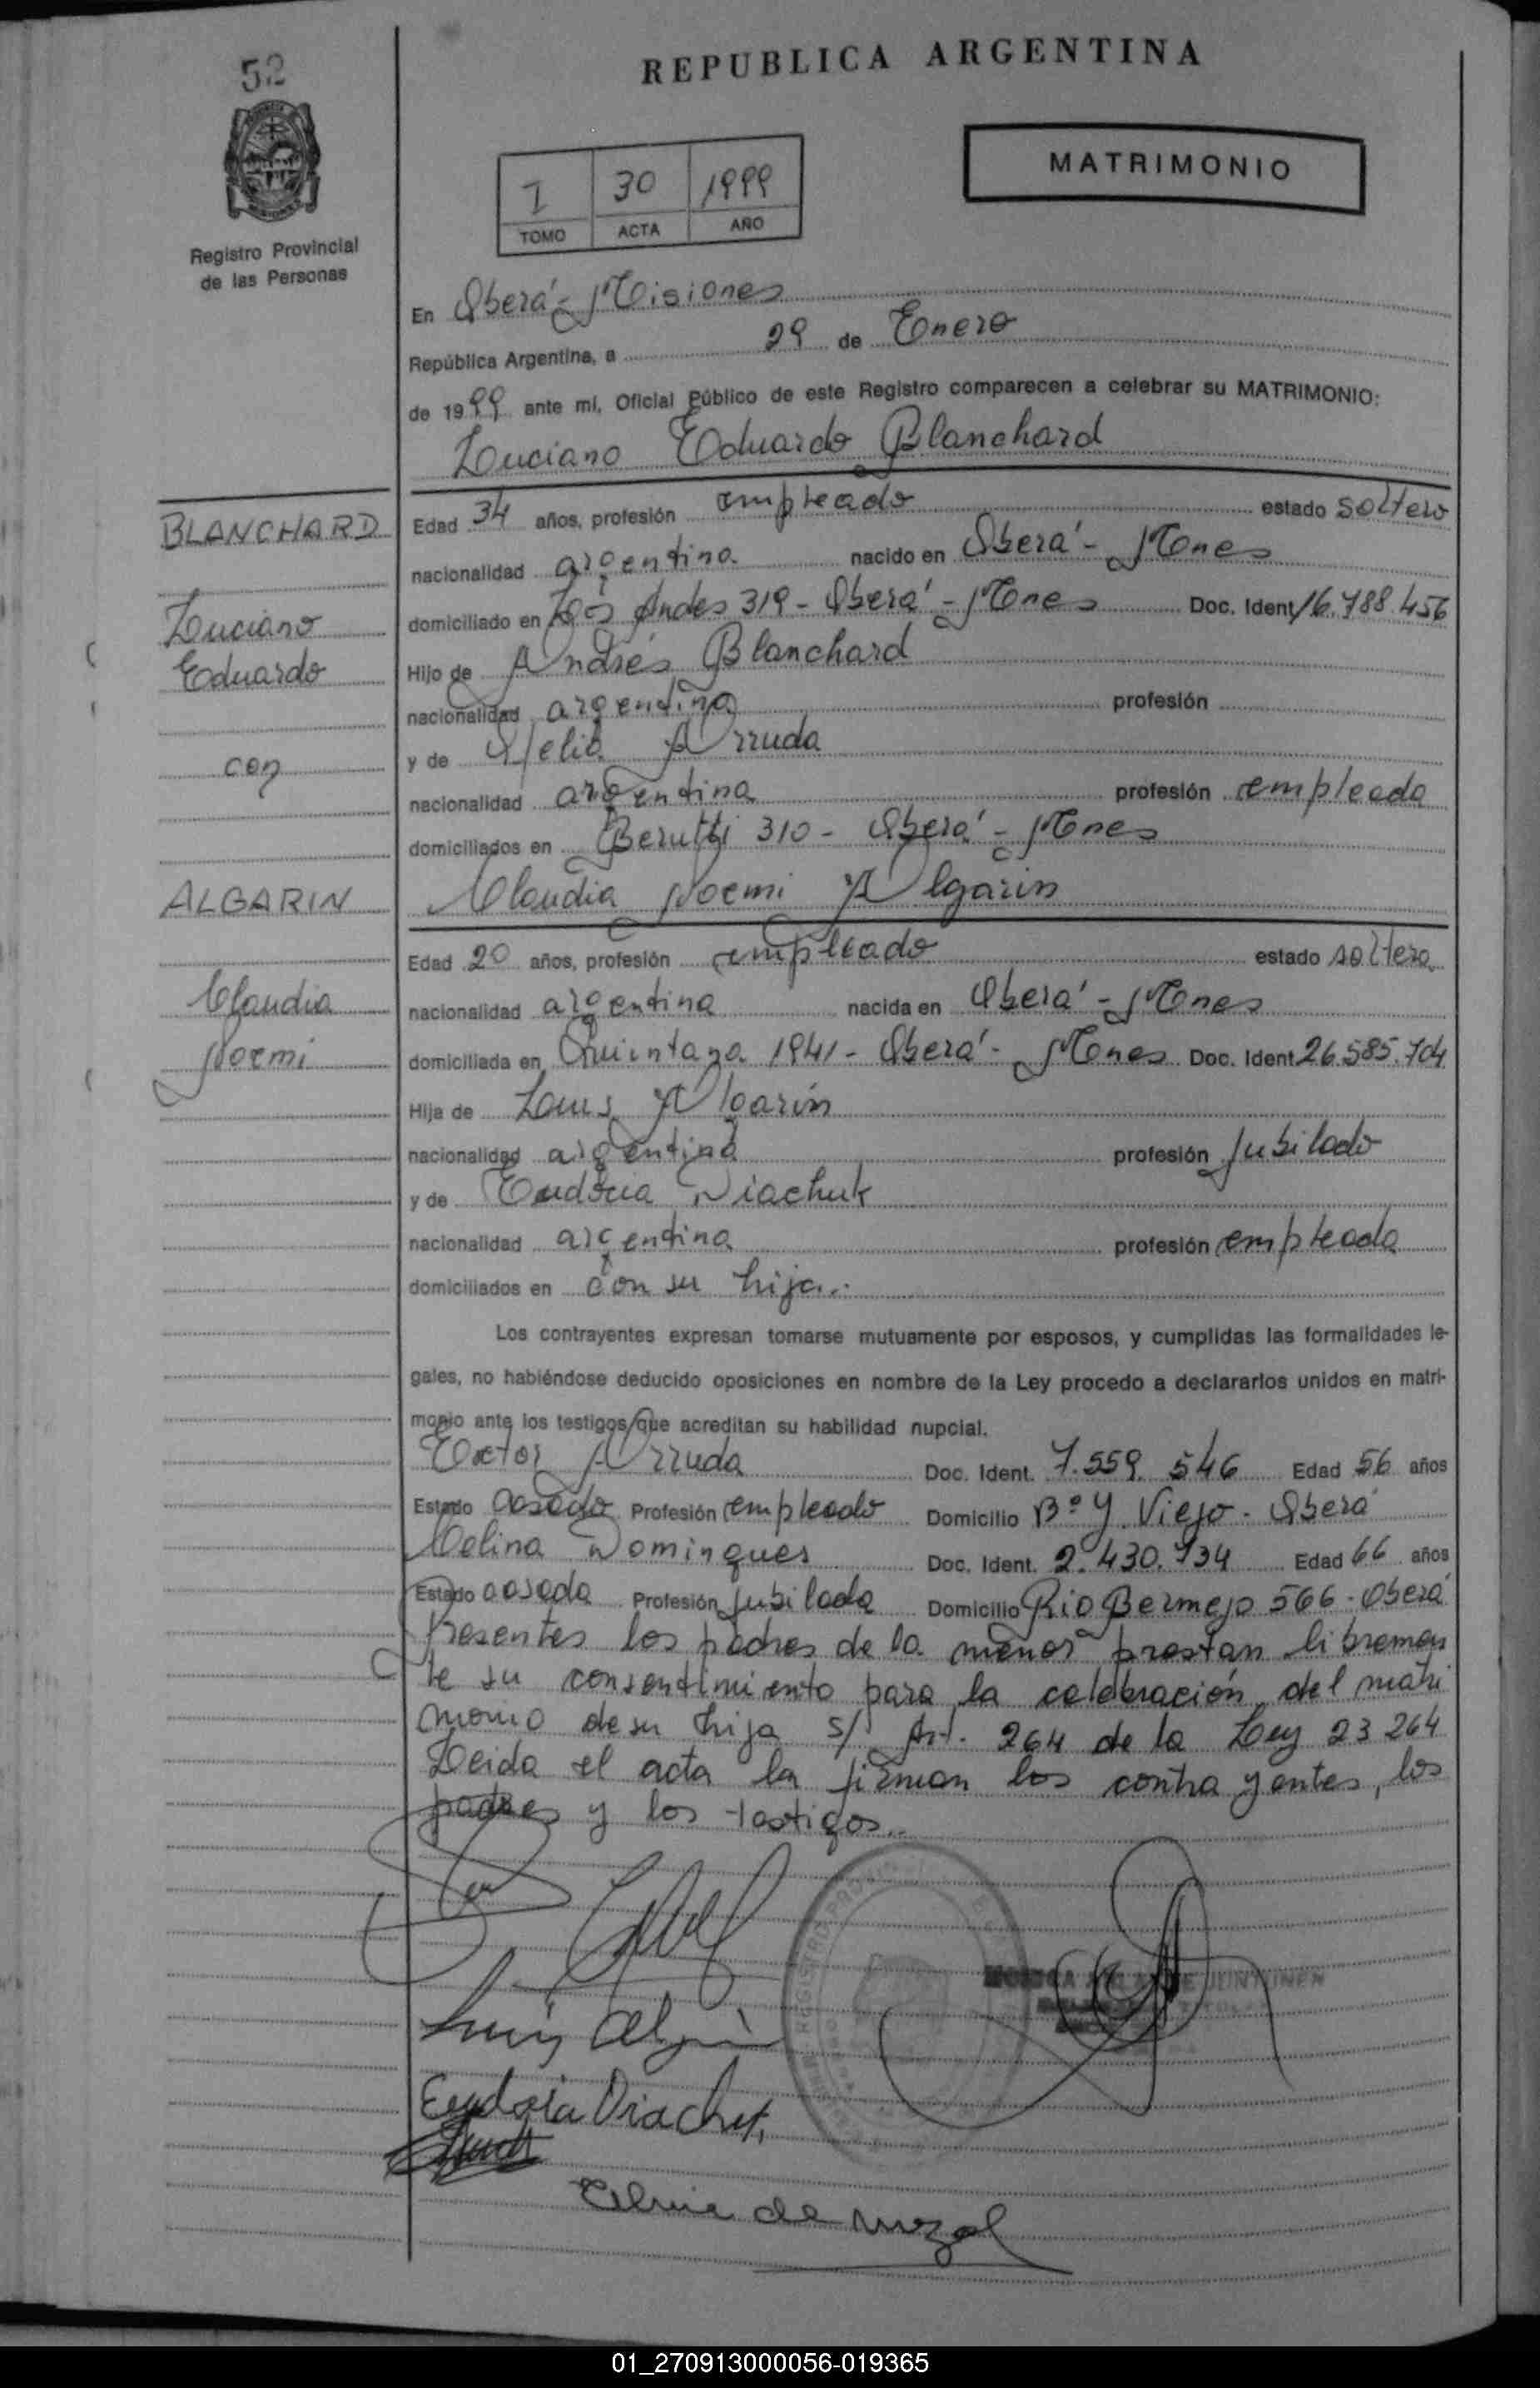 52
REPUBLICA ARGENTINA
MATRIMONIO
I 30 1999
TOMO ACTA AÑO
Registro Provincial
de las Personas
En Oberá - Misiones
República Argentina, a 29 de Enero
de 1999 ante mí, Oficial Público de este Registro comparecen a celebrar su MATRIMONIO:
Luciano Eduardo Blanchard
BLANCHARD
Luciano
Eduardo
con
ALGARIN
Claudia
Noemi
Edad 34 años, profesión empleado estado soltero
nacionalidad argentina nacido en Oberá - Mones
domiciliado en Los Andes 319 - Oberá - Mones Doc. Ident 16.788.456
Hijo de Andrés Blanchard
nacionalidad argentina profesión
y de Ofelia Arruda
nacionalidad argentina profesión empleada
domiciliados en Berutti 310 - Oberá - Mones
Claudia Noemi Algarin
Edad 20 años, profesión empleado estado soltera
nacionalidad argentina nacida en Oberá - Mones
domiciliada en Quintana 1941 - Oberá - Mones Doc. Ident 26.585.704
Hija de Luis Algarín
nacionalidad argentina profesión Jubilado
y de Eudocia Diachuk
nacionalidad argentina profesión empleada
domiciliados en con su hija.
Los contrayentes expresan tomarse mutuamente por esposos, y cumplidas las formalidades le-
gales, no habiéndose deducido oposiciones en nombre de la Ley procedo a declararlos unidos en matri-
monio ante los testigos que acreditan su habilidad nupcial.
Arruda Doc. Ident. 7.559.546 Edad 56 años
Estado casado Profesión empleado Domicilio Bº Y. Viejo - Oberá
Celina Domingues Doc. Ident. 2.430.734 Edad 66 años
Estado casada Profesión Jubilada Domicilio Rio Bermejo 566 - Oberá
Presentes los padres de la menor prestan libremen
te su consentimiento para la celebración del matri
monio de su hija s/ Art. 264 de la Ley 23264
Leida el acta la firman los contrayentes, los
padres y los testigos.
Luis Algarin
Eudocia Diachuk
01_270913000056-019365